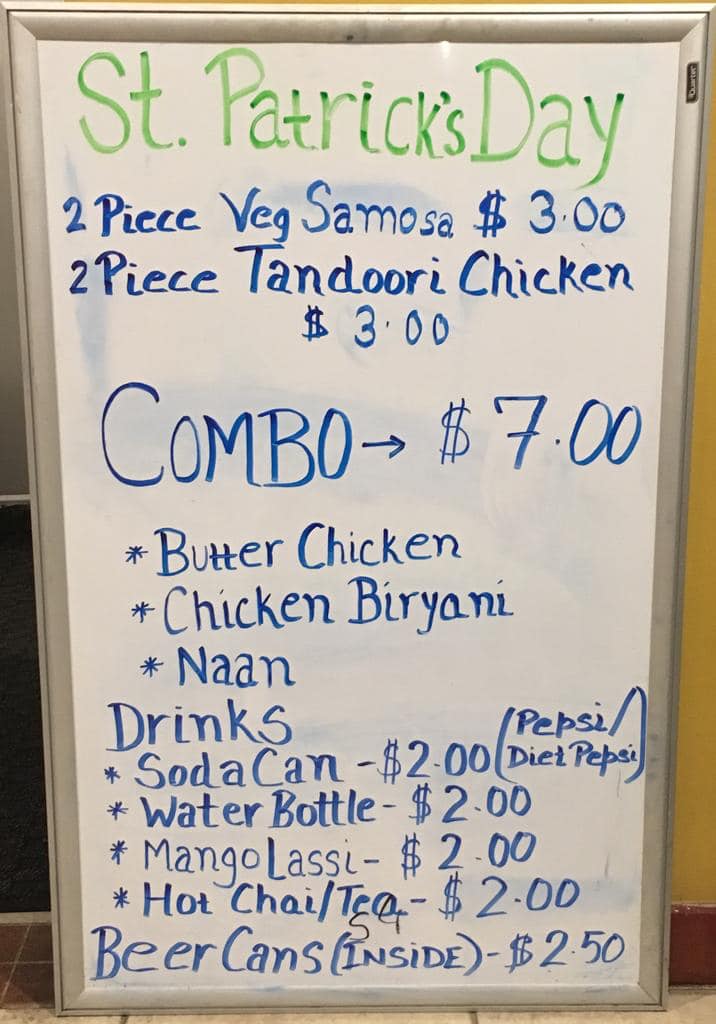 St. Patrick's Day
2 Piece Veg Samosa $ 3.00
2 Piece Tandoori Chicken
$ 3.00
COMBO→ $ 7.00
* Butter Chicken
* Chicken Biryani
* Naan
Drinks
* Soda Can - $2.00 (Pepsi/Diet Pepsi)
* Water Bottle - $ 2.00
* Mango Lassi - $ 2.00
* Hot Chai/Tea - $ 2.00
Beer Cans (INSiDE) - $ 2.50
Quartet